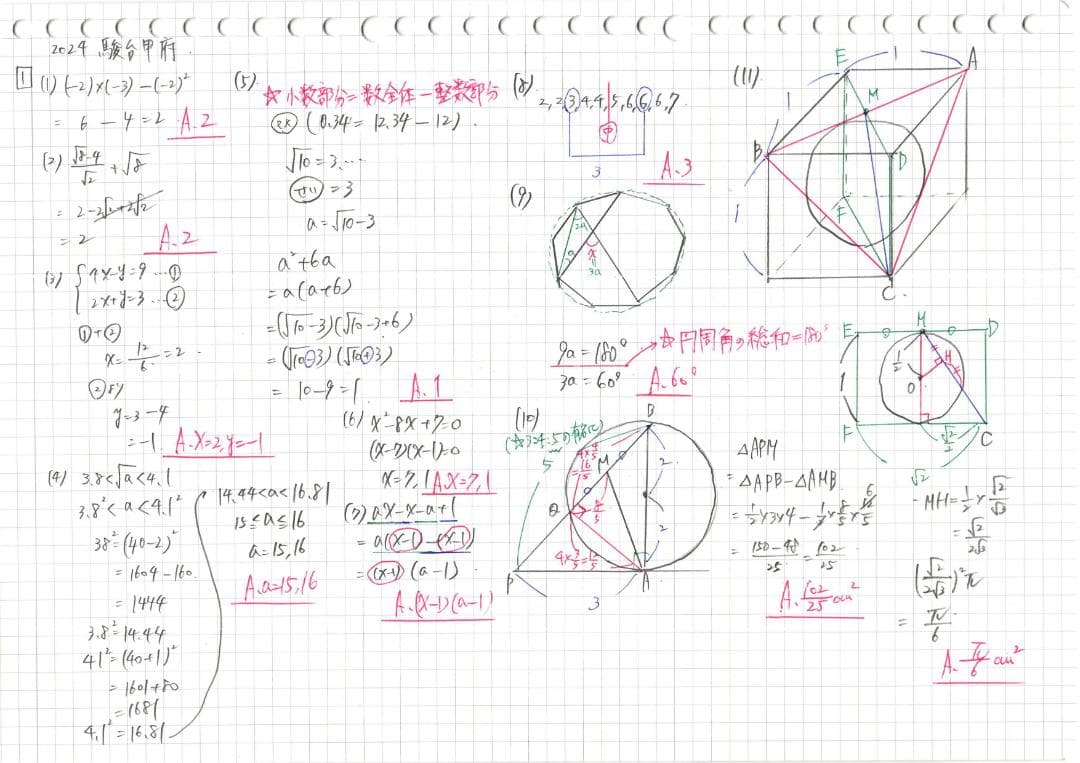 2024 駿台甲府
1
(1) (-2)×(-3)-(-2)²
= 6 - 4 = 2 A.2
(2) √8-4/√2 + √8
= 2-2√2+2√2
= 2
A.2
(3) { 4x-y=9 …①
2x+y=3 …②
①+②
x = 12/6 = 2
②より
y=3-4
=-1 A.x=2,y=-1
(4) 3.8<√a<4.1
3.8²<a<4.1²
38²=(40-2)²
=1604-160
=1444
3.8²=14.44
41²=(40+1)²
=1601+80
=1681
4.1²=16.81
14.44<a<16.81
15≦a≦16
a=15,16
A.a=15,16
(5)
☆小数部分=数全体-整数部分
(0.34=12.34-12)
√10=3.…
せい=3
a=√10-3
a²+6a
=a(a+6)
=(√10-3)(√10-3+6)
=(√10-3)(√10+3)
=10-9=1 A.1
(6) x²-8x+7=0
(x-7)(x-1)=0
x=7,1 A.x=7,1
(7) ax-x-a+1
=a(x-1)-(x-1)
=(x-1)(a-1)
A.(x-1)(a-1)
(8)
2,2,3,4,4,5,6,6,6,7
中
3
A.3
(9)
2a
a
x
3a
9a=180° ☆円周角の総和=180°
3a=60° A.60°
(10)
B
5
4×4/5
=16/5
M
2
Q
8/5
4×3/5=12/5
2
P
A
3
△APM
=△APB-△AMB
=1/2×3×4-1/2×8/5×12/5
6
=150-48/25=102/25
A.102/25cm²
(11)
E
1
A
M
1
B
D
F
1
C
E
M
D
1/2
H
1
O
F
√2/2
C
√2
MH=1/2×√2/√3
=√2/2√3
(√2/2√3)²π
=π/6
A.π/6cm²